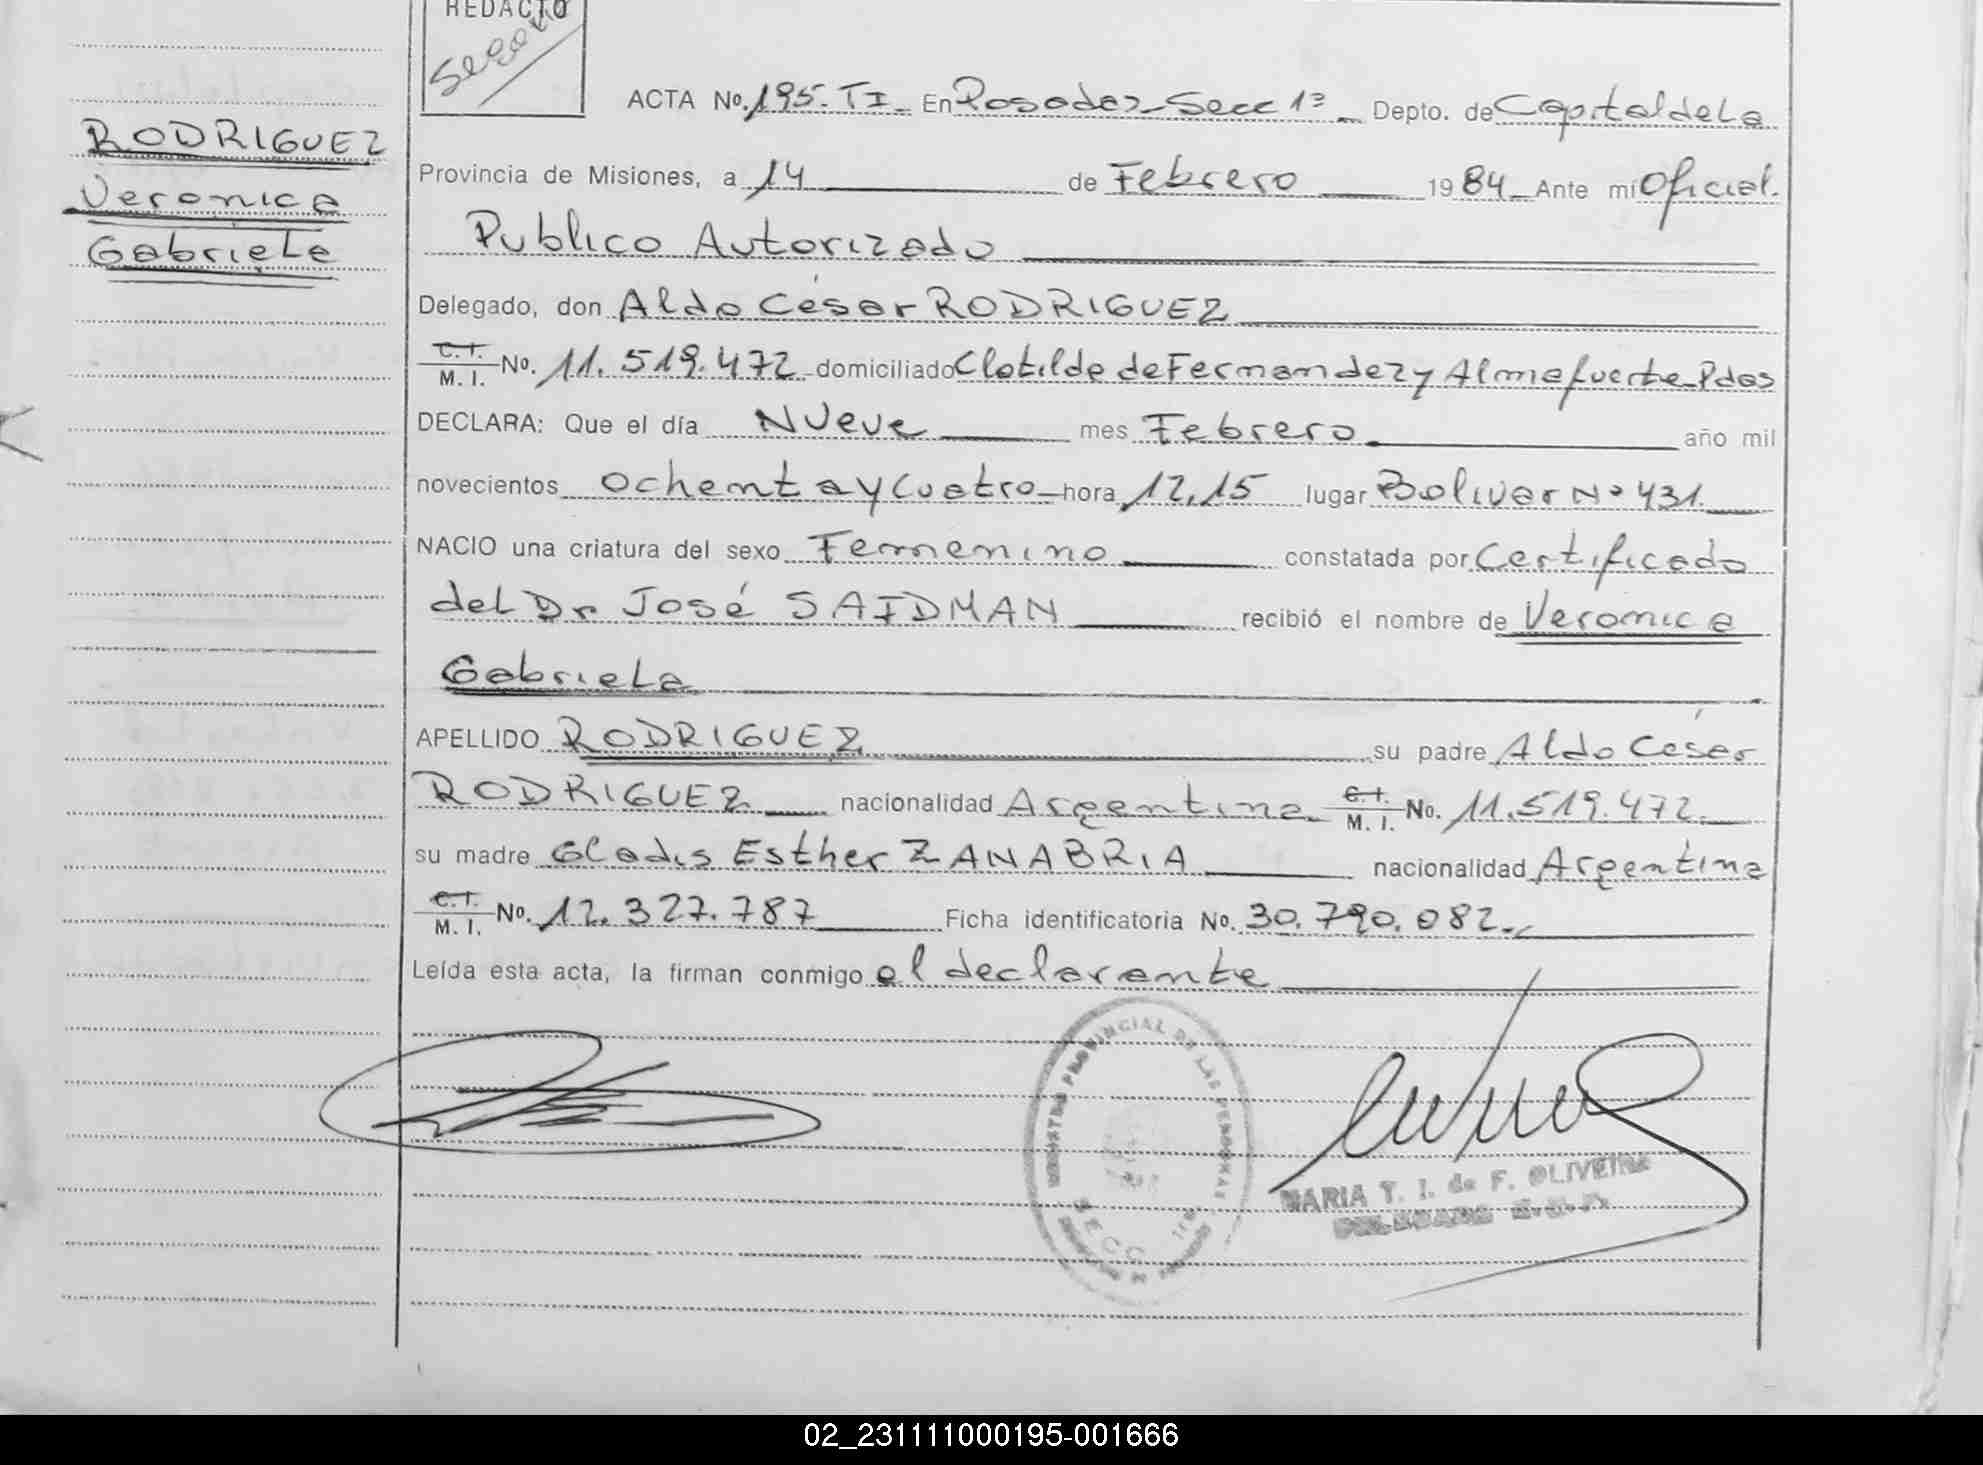 REDACTO
Segov
ACTA No. 195. TI - En Posadas - Secc 1ª - Depto. de Capital de La
RODRIGUEZ
Veronica
Gabriela
Provincia de Misiones, a 14 de Febrero 1984 - Ante mi Oficial.
Publico Autorizado
Delegado, don Aldo César RODRIGUEZ
C.I. M. I. No. 11.519.472 - domiciliado Clotilde de Fernandez y Almafuerte - Pdas
DECLARA: Que el día Nueve mes Febrero año mil
novecientos Ochenta y Cuatro - hora 12,15 lugar Bolivar Nº 431.
NACIO una criatura del sexo Femenino constatada por Certificado
del Dr José SAIDMAN recibió el nombre de Veronica
Gabriela
APELLIDO RODRIGUEZ su padre Aldo César
RODRIGUEZ nacionalidad Argentina C.I. M. I. No. 11.519.472.
su madre Gladis Esther ZANABRIA nacionalidad Argentina
C.I. M. I. No. 12.327.787 Ficha identificatoria No. 30.790.082.-
Leída esta acta, la firman conmigo el declarante
REGISTRO PROVINCIAL DE LAS PERSONAS
SECC 1ra
MARIA T. I. de F. OLIVEIRA
02_231111000195-001666